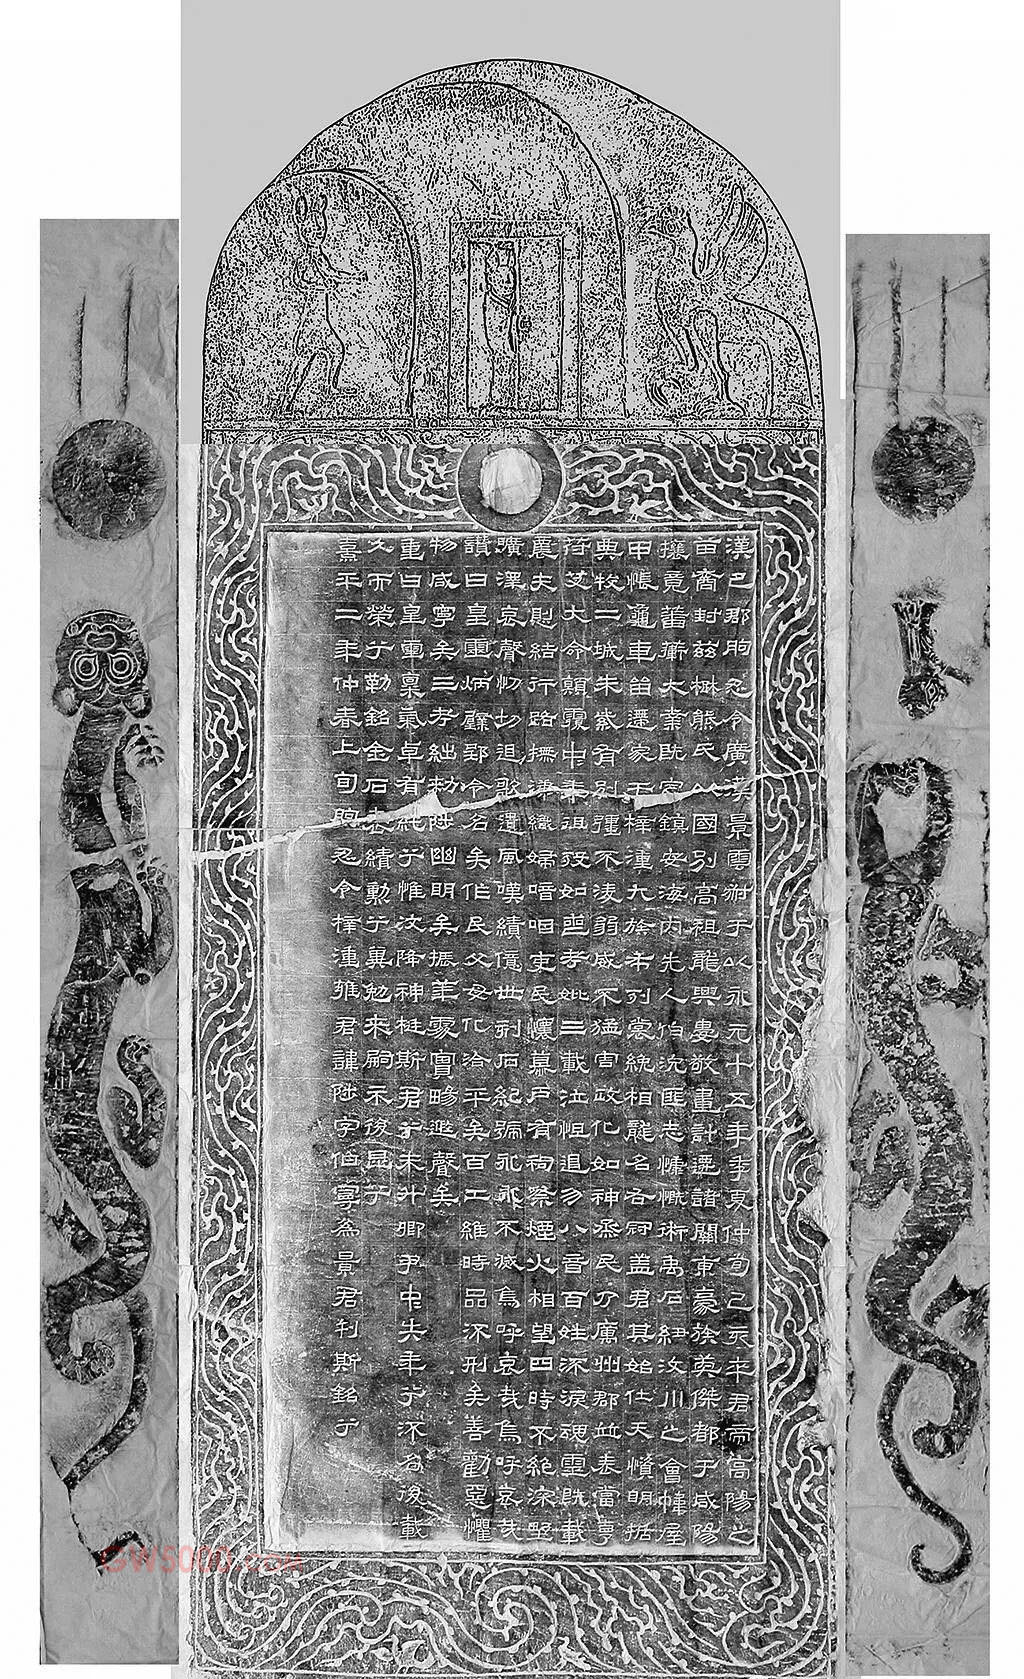 漢巴郡朐忍令廣漢景雲叔于以永元十五年季夏仲旬己亥卒君帝高陽之
苗裔封茲楚熊氏以國別高祖龍興婁敬畫計遷諸關東豪族英傑都于咸陽
攘竟蕃衛大業既定鎮安海內先人伯沇匪志慷慨術禹石紐汶川之會幃屋
甲帳龜車留遰家于梓潼九族布列裳絻相襲名右冠蓋君其始仕天資明括
典牧二城朱紫有別彊不凌弱威不猛害政化如神烝民乃厲州郡並表當享
苻艾大命顛覆中年徂歿如喪考妣三載泣怛遏勿八音百姓流淚魂靈既載
農夫惻結行路撫涕織婦喑咽吏民懷慕戶有祠祭煙火相望四時不絕深野
曠澤哀聲忉切追歌遺風嘆績億世刻石紀號永永不滅烏呼哀哉烏呼哀哉
讚曰皇靈炳璧郢令名矣作民父母化洽平矣百工維時品流刑矣善勸惡懼
物咸寧矣三考絀敕陟幽明矣振華處實暘遐聲矣
重曰皇靈稟氣卓有純兮惟汶降神梃斯君兮未升卿尹中失年兮流名後載
久而榮兮勒銘金石表績勳兮冀勉來嗣示後昆兮
熹平二年仲春上旬朐忍令梓潼雍君諱陟字伯寧為景君刊斯銘兮
GW5000.COM